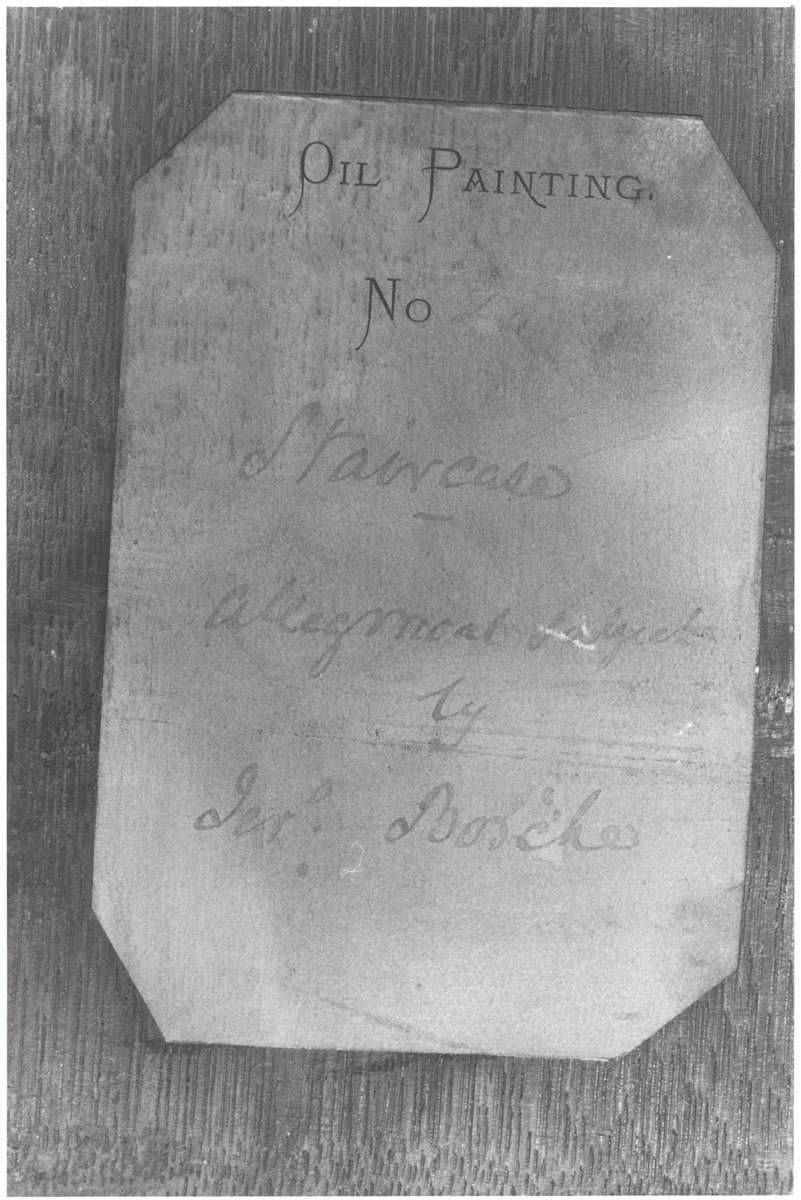 OIL PAINTING.
No
Staircase
Allegorical subject
by
Jer.o Bosche